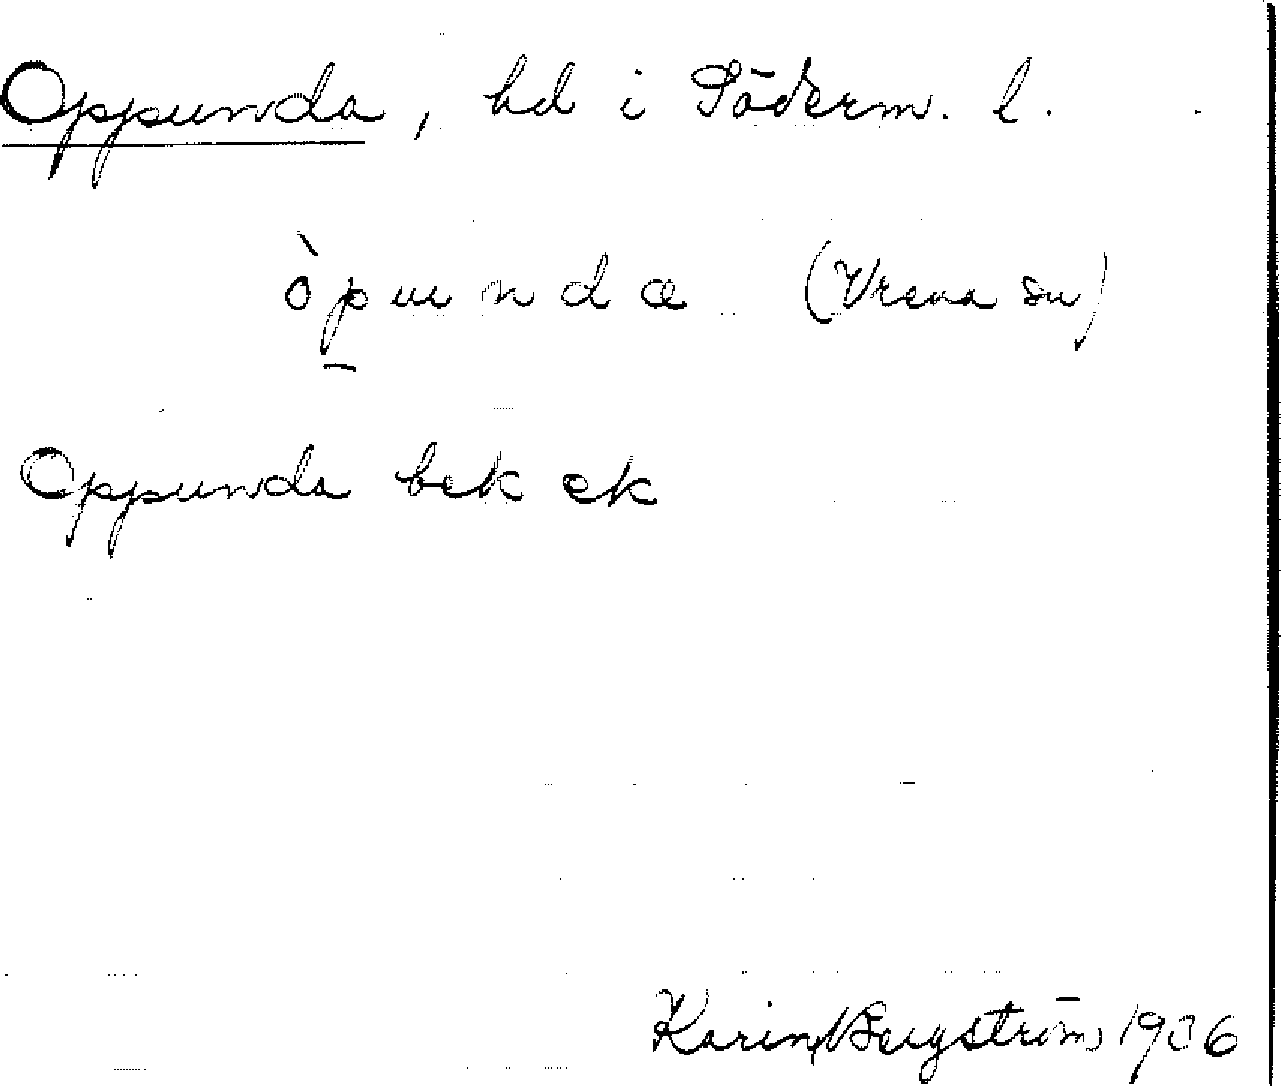 Oppunda, hd i Söderm. l.
òpunda (Vrena sn)
Oppunda bek ek
Karin Bergström 1936